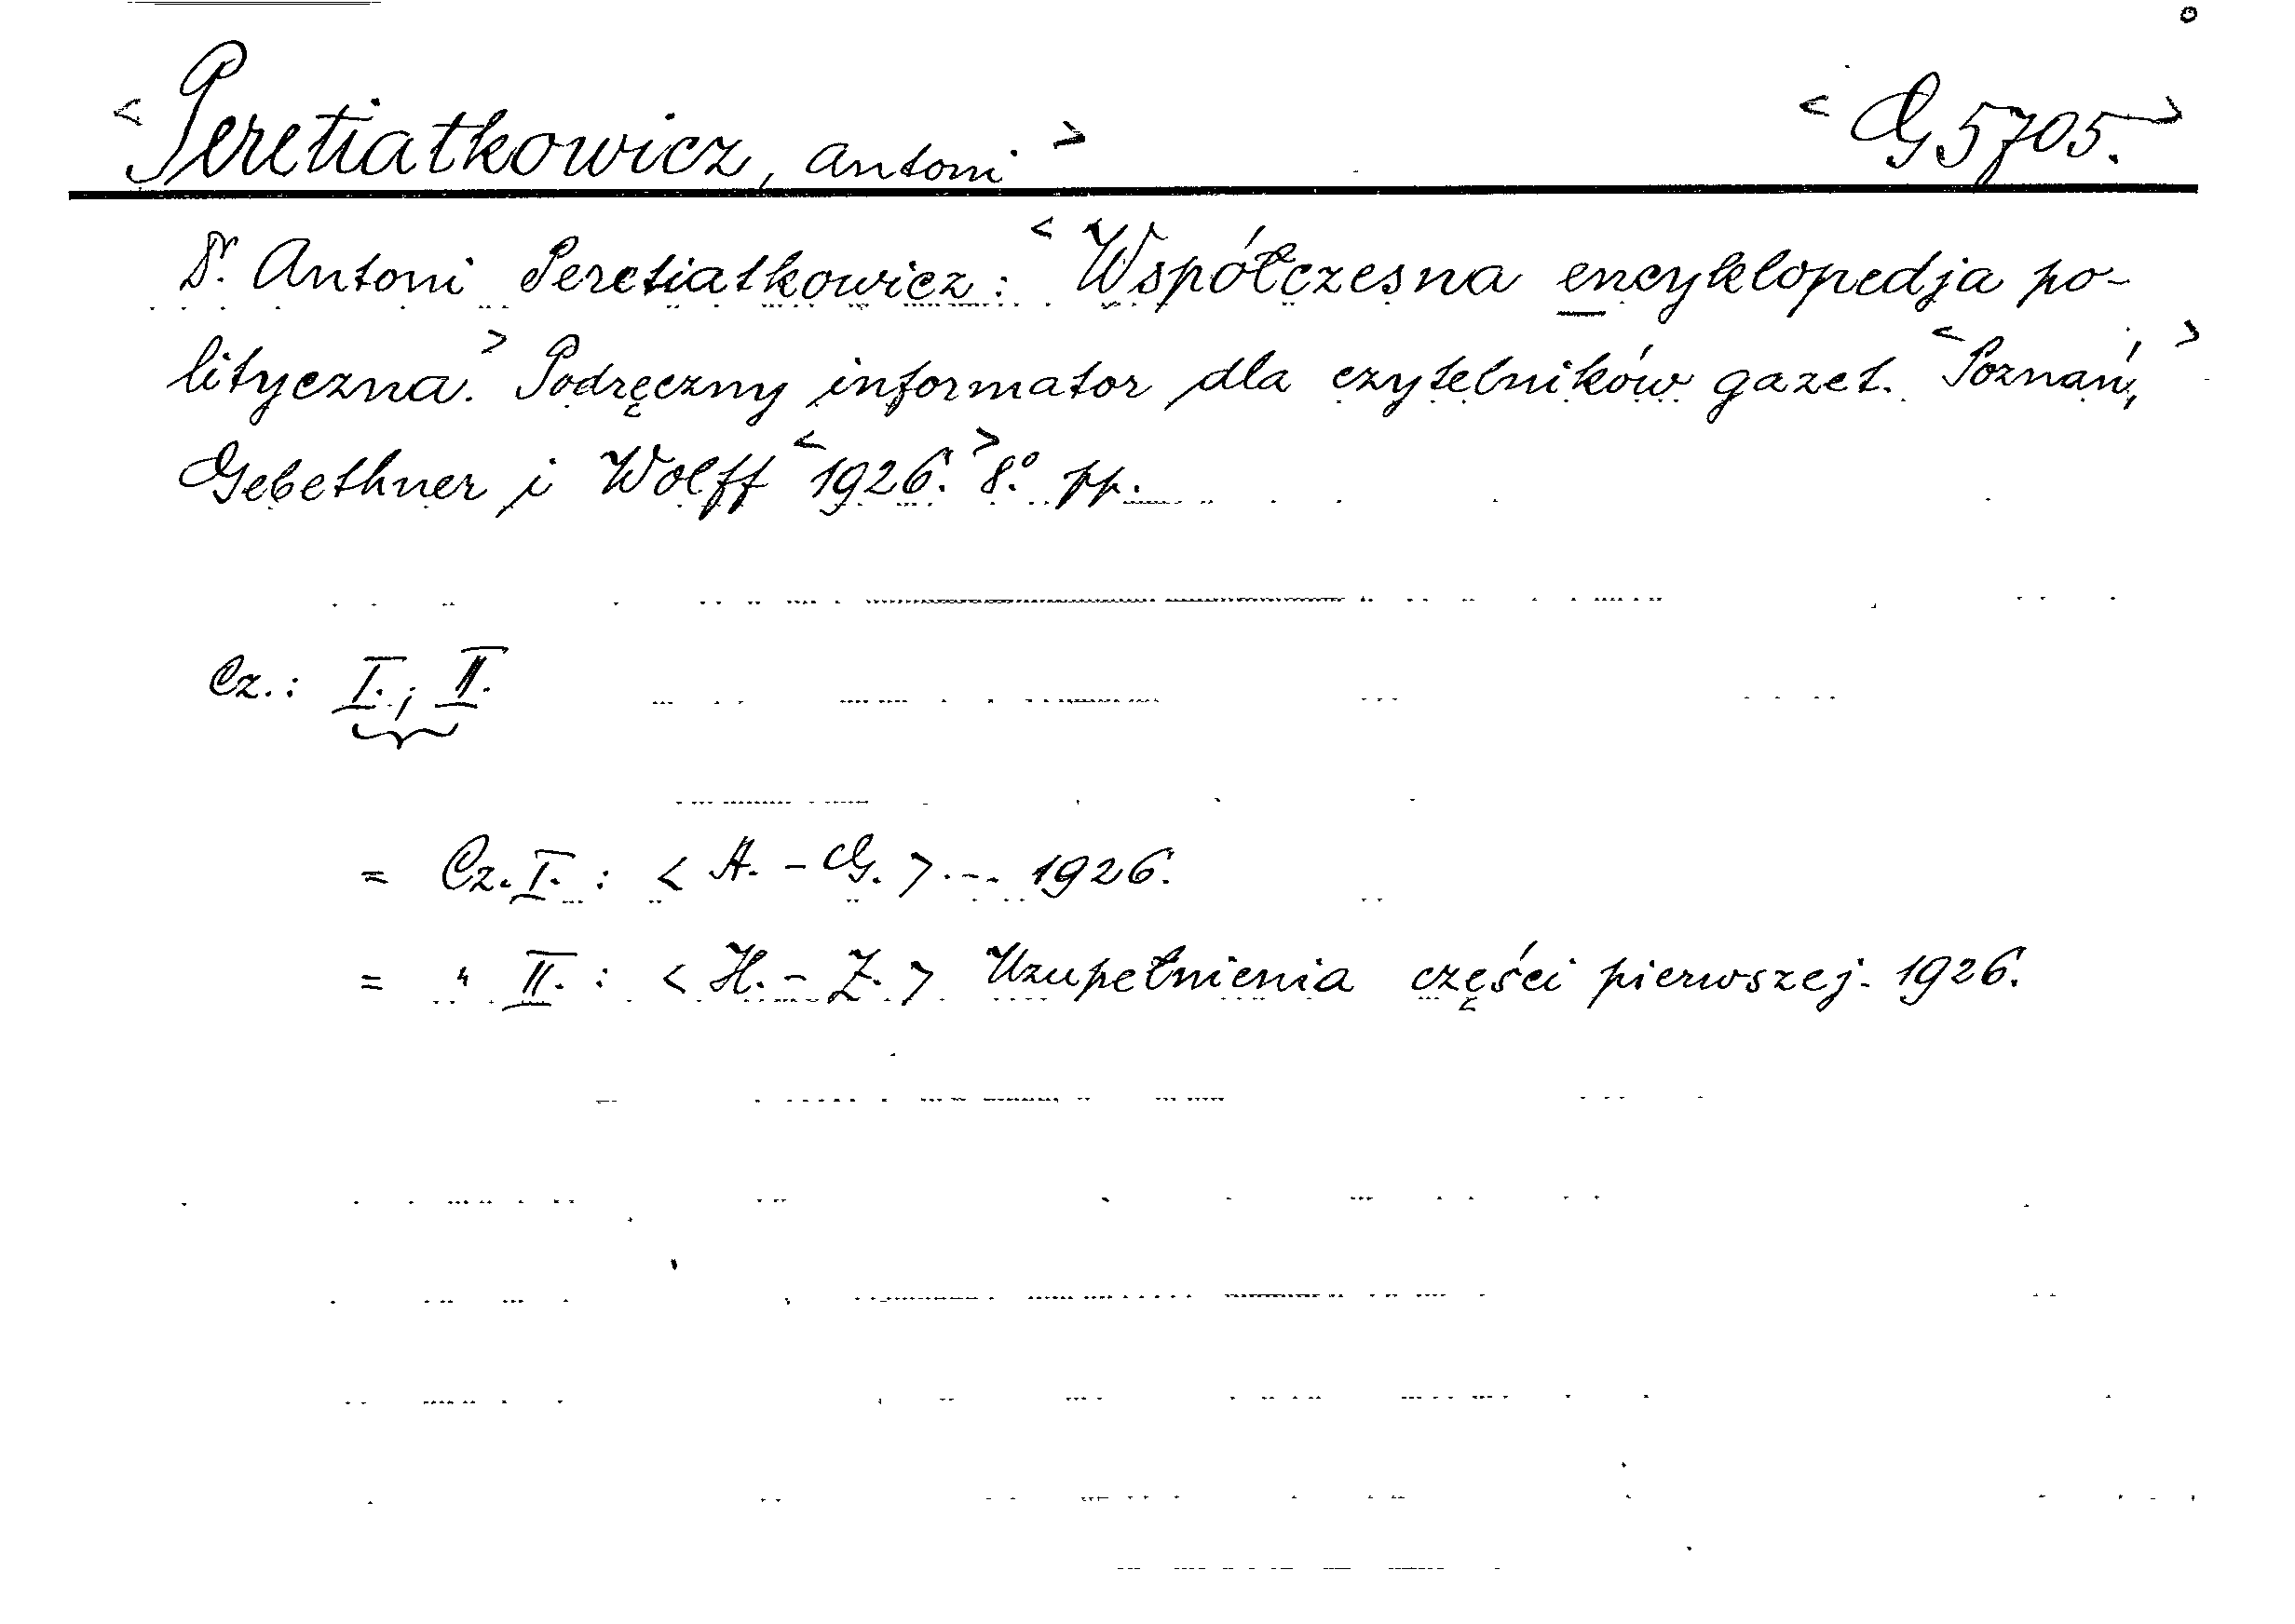 <Peretiatkowicz, Antoni> <G 5705.>
Dr. Antoni Peretiatkowicz: <Współczesna encyklopedja po-
lityczna.> Podręczny informator dla czytelników gazet. <Poznań,>
Gebethner i Wolff <1926.> 8.° pp.
Cz.: I.; II.
= Cz. I. : <A. - G.> ... 1926.
= " II. : <H. - Z.> Uzupełnienia części pierwszej. 1926.